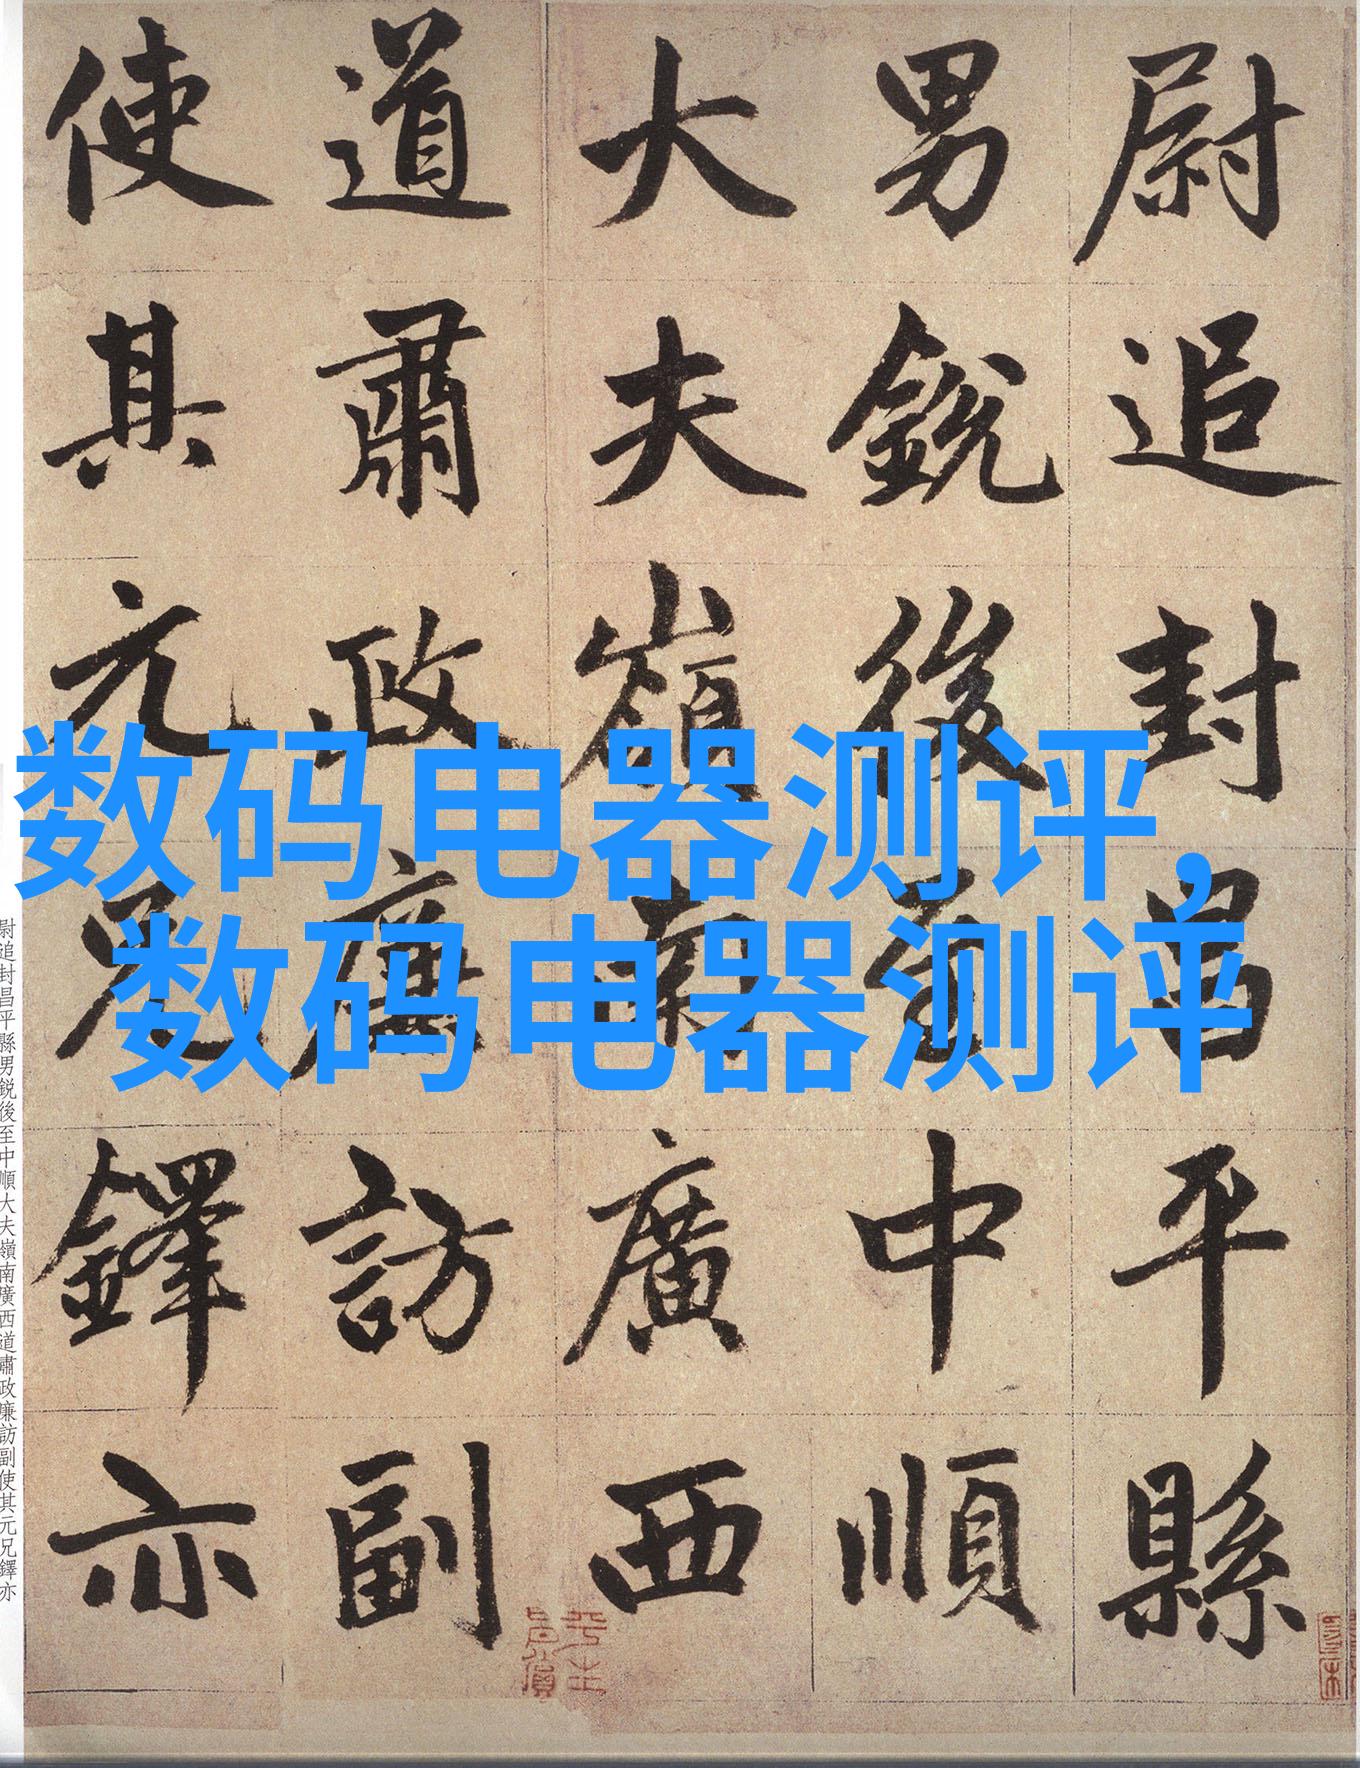 尉追封昌平縣
男銳後至中順
大夫嶺南廣西
道肅政廉訪副
使其元兄鐸亦
数码电器测评,
数码电器测评
尉追封昌平縣男銳後至中順大夫嶺南廣西道肅政廉訪副使其元兄鐸亦